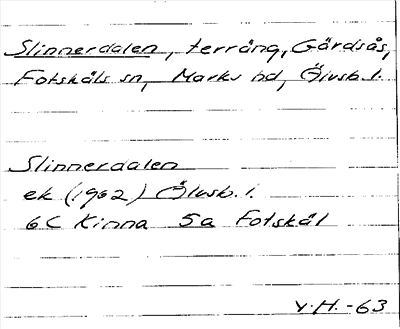 Slinnerdalen, terräng, Gärdsås,
Fotskäls sn, Marks hd, Älvsb. l.
Slinnerdalen
ek (1962) Älvsb. l.
6C Kinna 5a Fotskäl
V.H.-63